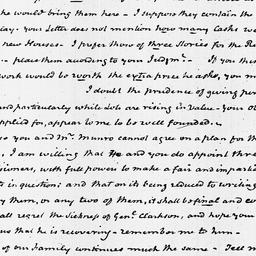 he would bring them here - I suppose they contain the
day. your Letter does not mention how many Casks we
new Houses - I prefer those of three Stories for the Re
- place them according to your Judgmt. - If you thes
work would be worth the extra price he asks, you m
I doubt the prudence of giving per
and particularly while Lots are rising in Value - your Ob
applied for, appear to me to be well founded. -
as you and Mr. Munro cannot agree on a plan for th
, I am willing that He and you do appoint three
sioners, with full power to make a fair and imparti
ts in question; and that on its being reduced to writing
by them, or any two of them, it shall be final and co
all regret the Sickness of Genl. Clarkson, and hope you
us that he is recovering - remember me to him -
of our Family continues much the same - Tell m